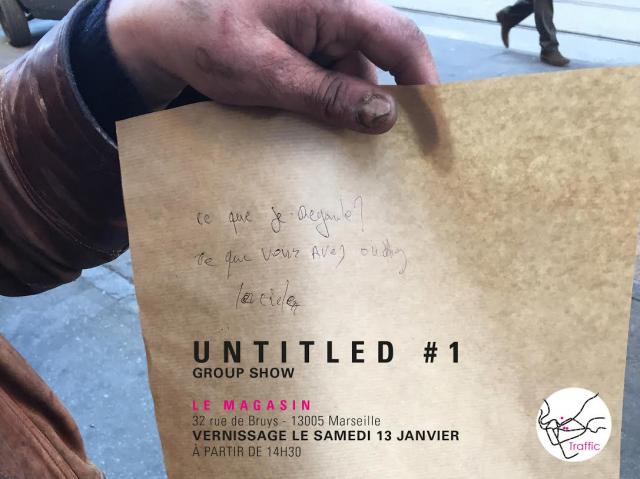 ce que je Regarde?
ce que vous AVez
UNTITLED #1
GROUP SHOW
LE MAGASIN
32 rue de Bruys - 13005 Marseille
VERNISSAGE LE SAMEDI 13 JANVIER
À PARTIR DE 14H30
Traffic